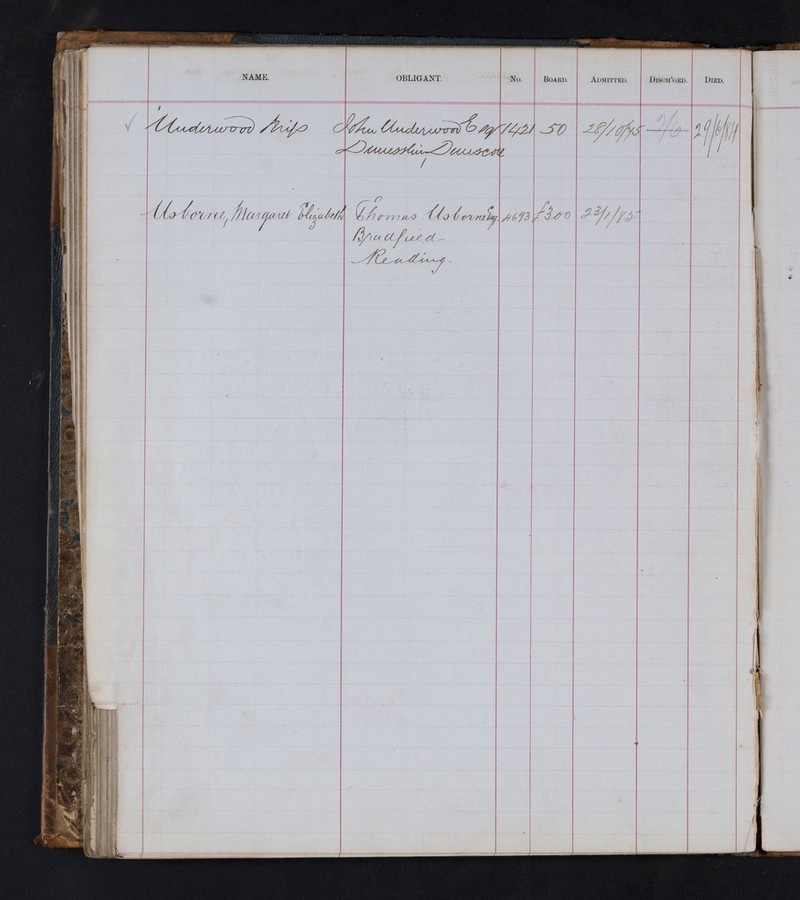 NAME. OBLIGANT. No. BOARD. ADMITTED. DISCH'GED. DIED.
✓ Underwood Miss John Underwood Esqr 1421 50 28/10/75 29/6/81
Dunscore
Usborne, Margaret Elizabeth Thomas Usborne Esq. 4693 £300 23/1/85
Bradfield
Reading.